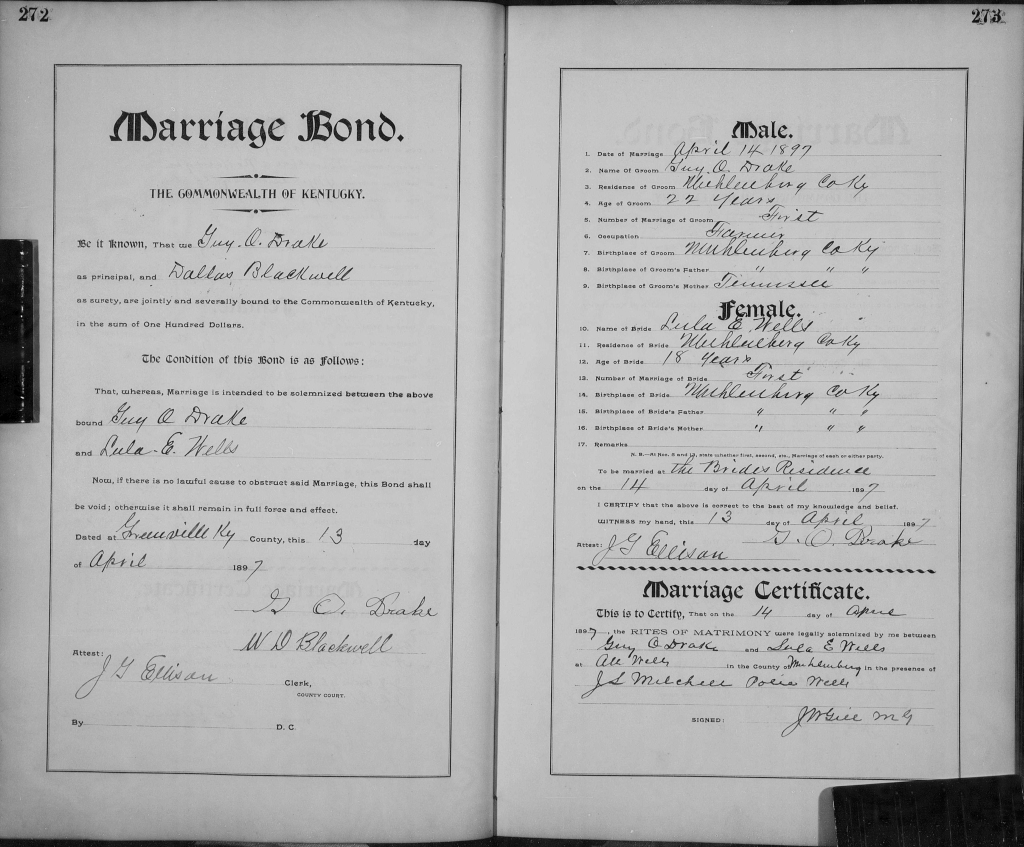 272
Marriage Bond.
THE COMMONWEALTH OF KENTUCKY.
Be it Known, That we Guy. O. Drake
as principal, and Dallas Blackwell
as surety, are jointly and severally bound to the Commonwealth of Kentucky,
in the sum of One Hundred Dollars.
The Condition of this Bond is as Follows:
That, whereas, Marriage is intended to be solemnized between the above
bound Guy O Drake
and Lula E. Wells
Now, if there is no lawful cause to obstruct said Marriage, this Bond shall
be void; otherwise it shall remain in full force and effect.
Dated at Greenville Ky County, this 13 day
of April 1897
G O. Drake
W D Blackwell
Attest:
J G Ellison Clerk,
COUNTY COURT.
By D. C.
273
Male.
1. Date of Marriage April 14 1897
2. Name Of Groom Guy. O. Drake
3. Residence of Groom Muhlenberg Co Ky
4. Age of Groom 22 Years
5. Number of Marriage of Groom First
6. Occupation Farmer
7. Birthplace of Groom Muhlenberg Co Ky
8. Birthplace of Groom's Father " " "
9. Birthplace of Groom's Mother Tennessee
Female.
10. Name of Bride Lula E. Wells
11. Residence of Bride Muhlenberg Co Ky
12. Age of Bride 18 Years
13. Number of Marriage of Bride First
14. Birthplace of Bride Muhlenberg Co Ky
15. Birthplace of Bride's Father " " "
16. Birthplace of Bride's Mother " " "
17. Remarks
N. B.—At Nos. 5 and 13, state whether first, second, etc., Marriage of each or either party.
To be married at the Brides Residence
on the 14 day of April 1897
I CERTIFY that the above is correct to the best of my knowledge and belief.
WITNESS my hand, this 13 day of April 1897
G. O. Drake
Attest: J G Ellison
Marriage Certificate.
This is to Certify, That on the 14 day of April
1897, the RITES OF MATRIMONY were legally solemnized by me between
Guy O Drake and Lula E Wells
at Wells in the County of Muhlenberg in the presence of
J S Mitchell Wells
SIGNED: J W Gill M G